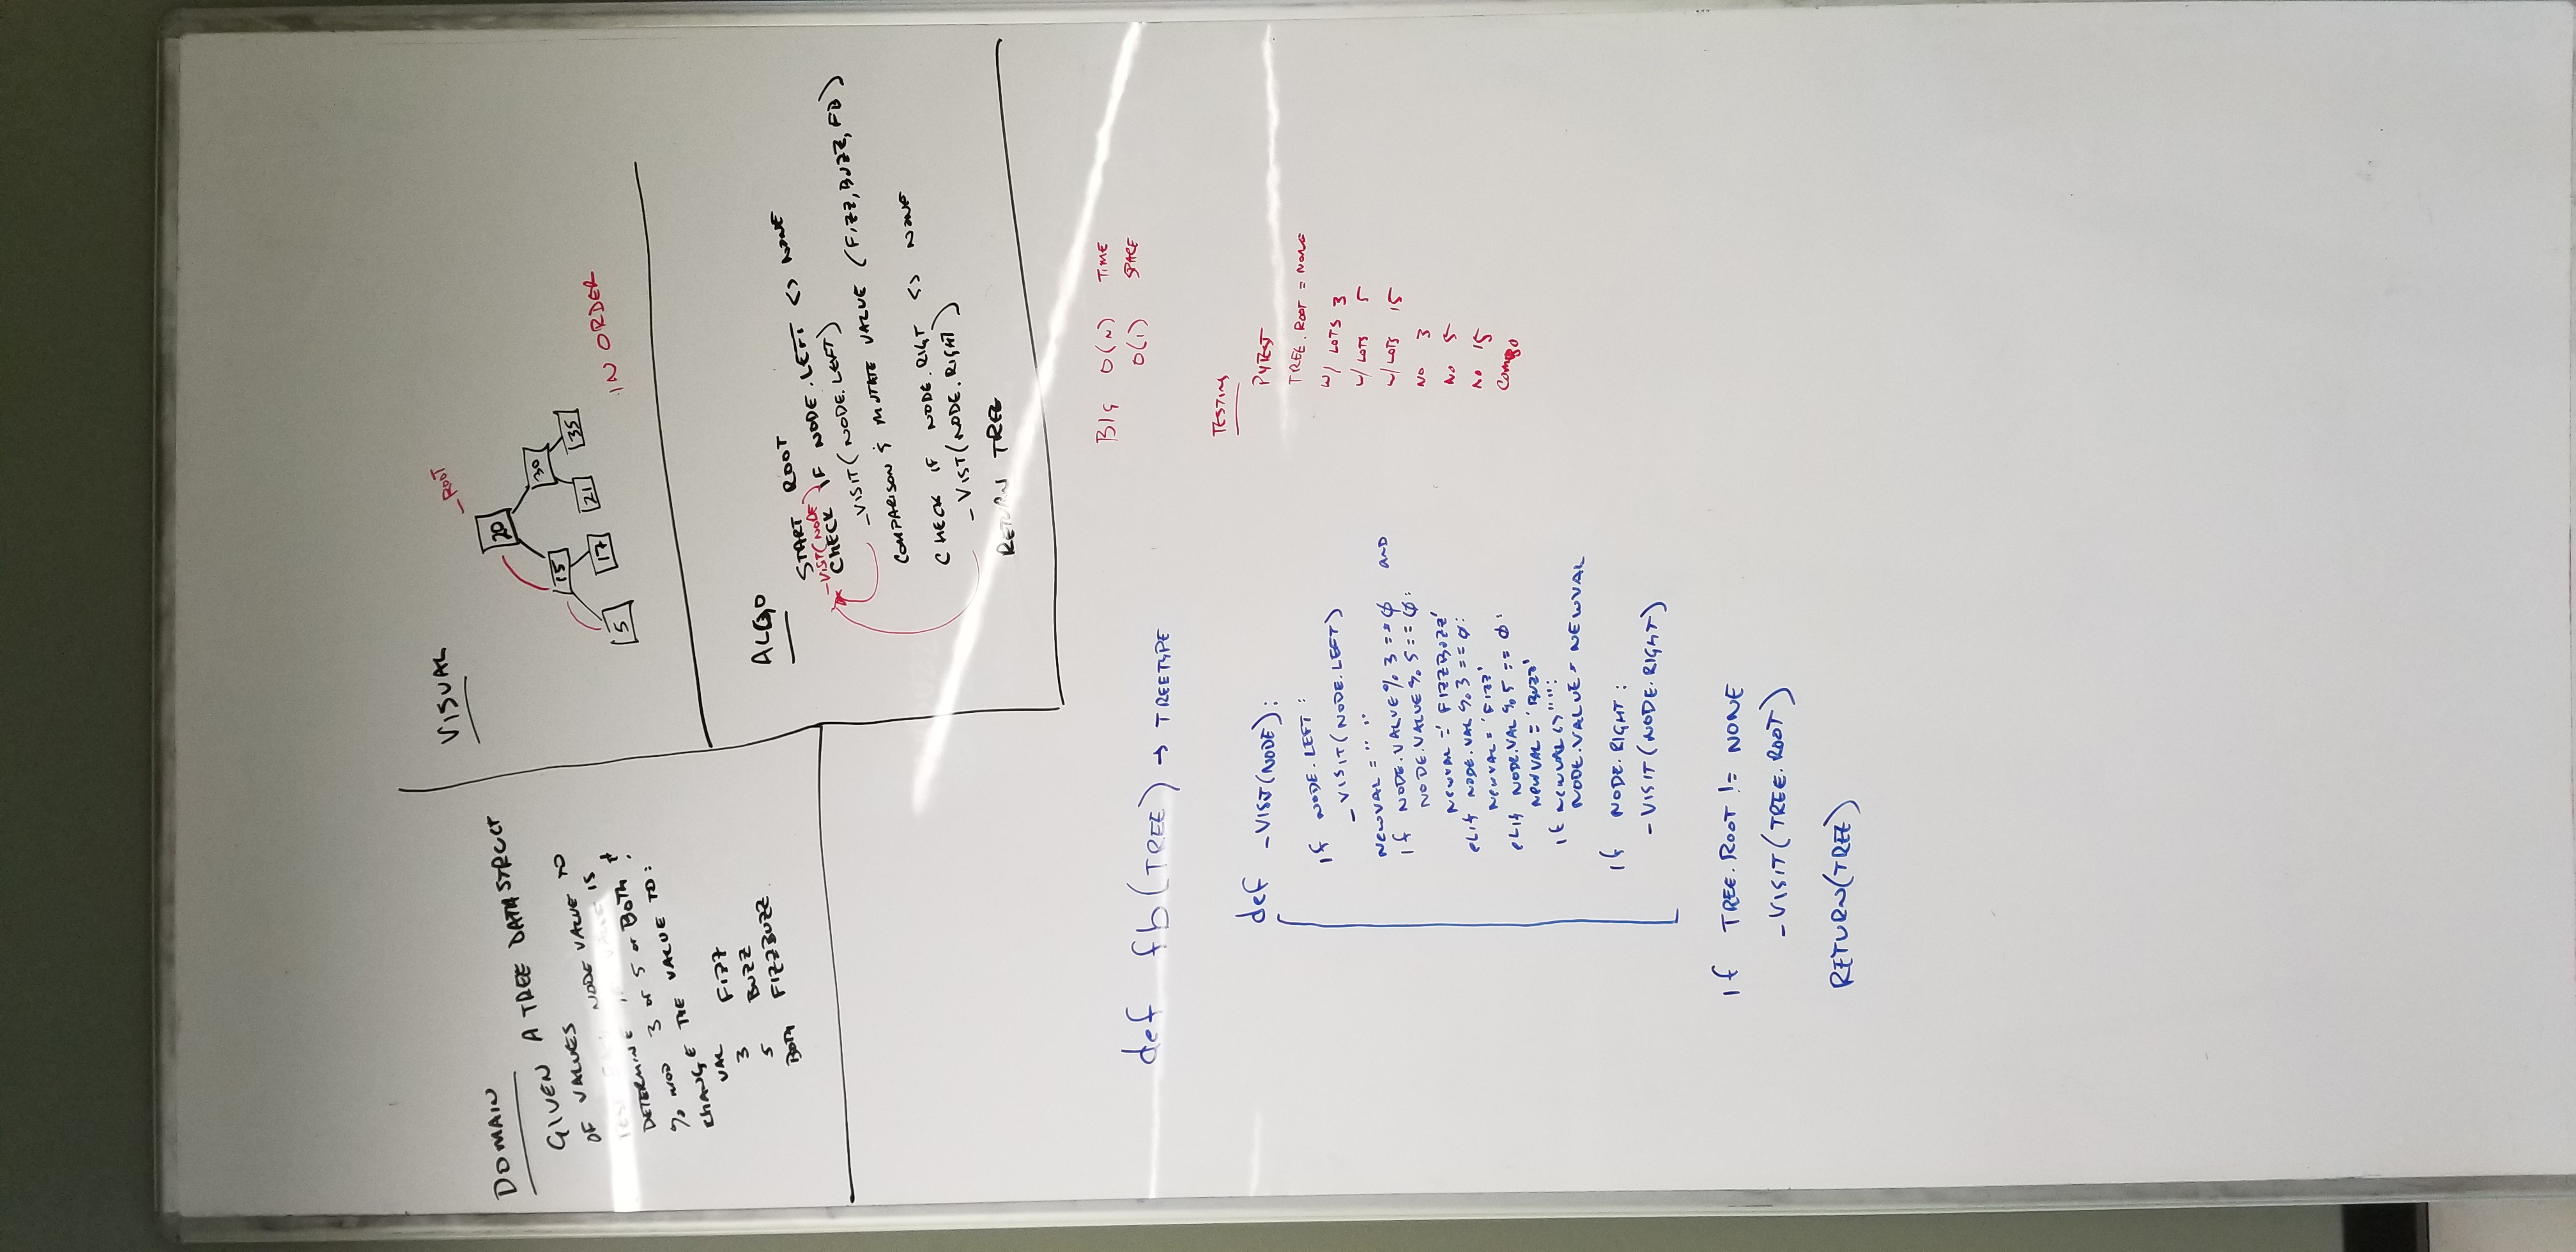 DOMAIN
GIVEN A TREE DATA STRUCT
OF VALUES
NODE VALUE TO
DETERMINE IF VALUE IS
% MOD 3 or 5 or BOTH &
CHANGE THE VALUE TO:
VAL
3 FIZZ
5 BUZZ
BOTH FIZZBUZZ
VISUAL
_ROOT
20
15 30
5 17 21 35
IN ORDER
ALGO
START ROOT
-VIST(NODE)
CHECK IF NODE.LEFT <> NONE
_VISIT(NODE.LEFT)
COMPARISON & MUTATE VALUE (FIZZ, BUZZ, FB)
CHECK IF NODE.RIGT <> NONE
_VIST(NODE.RIGHT)
RETURN TREE
BIG O(N) TIME
O(1) SPACE
def fb(TREE) → TREETYPE
def _VISIT(NODE):
if NODE.LEFT:
_VISIT(NODE.LEFT)
NEWVAL = " "
if NODE.VALUE % 3 == 0 AND
NODE.VALUE % 5 == 0:
NEWVAL = 'FIZZBUZZ'
eLif NODE.VAL % 3 == 0:
NEWVAL = 'FIZZ'
eLif NODE.VAL % 5 == 0:
NEWVAL = 'BUZZ'
if NEWVAL <> "":
NODE.VALUE = NEWVAL
if NODE.RIGHT:
-VISIT(NODE.RIGHT)
if TREE.ROOT != NONE
-VISIT(TREE.ROOT)
RETURN(TREE)
TESTING
PYTEST
TREE.ROOT = NONE
W/ LOTS 3
W/ LOTS 5
W/ LOTS 15
NO 3
NO 5
NO 15
COMBO